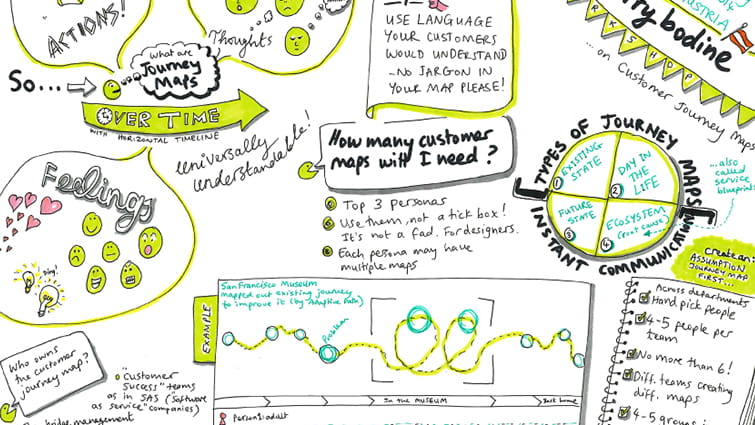 ACTIONS!
So...
What are
Journey
Maps
Thoughts
OVER TIME
WITH HORIZONTAL TIMELINE
universally
understandable!
USE LANGUAGE
YOUR CUSTOMERS
WOULD UNDERSTAND
_NO JARGON IN
YOUR MAP PLEASE!
USTRIA
rry bodine
KSHOP
... on Customer Journey Maps
How many customer
maps will I need?
Top 3 personas
Use them, not a tick box!
It's not a fad. For designers.
Each persona may have
multiple maps
TYPES OF JOURNEY MAPS
INSTANT COMMUNICATION
1 EXISTING
STATE
2 DAY IN
THE
LIFE
3 FUTURE
STATE
4 ECOSYSTEM
(root cause)
...also
called
service
blueprint
Create an:
ASSUMPTION
JOURNEY MAP
FIRST...
Feelings
Ding!
Who owns
the customer
journey map?
"Customer
Success" teams
as in SAS ("Software
as service" companies)
bridge management
EXAMPLE
San Francisco Museum
mapped out existing journey
to improve it (by Adaptive Path)
Problem
IN the MUSEUM
Back home
Person 1: adult
Across departments
Hand pick people
4-5 people per
team
No more than 6!
Diff. teams creating
diff. maps
4-5 groups